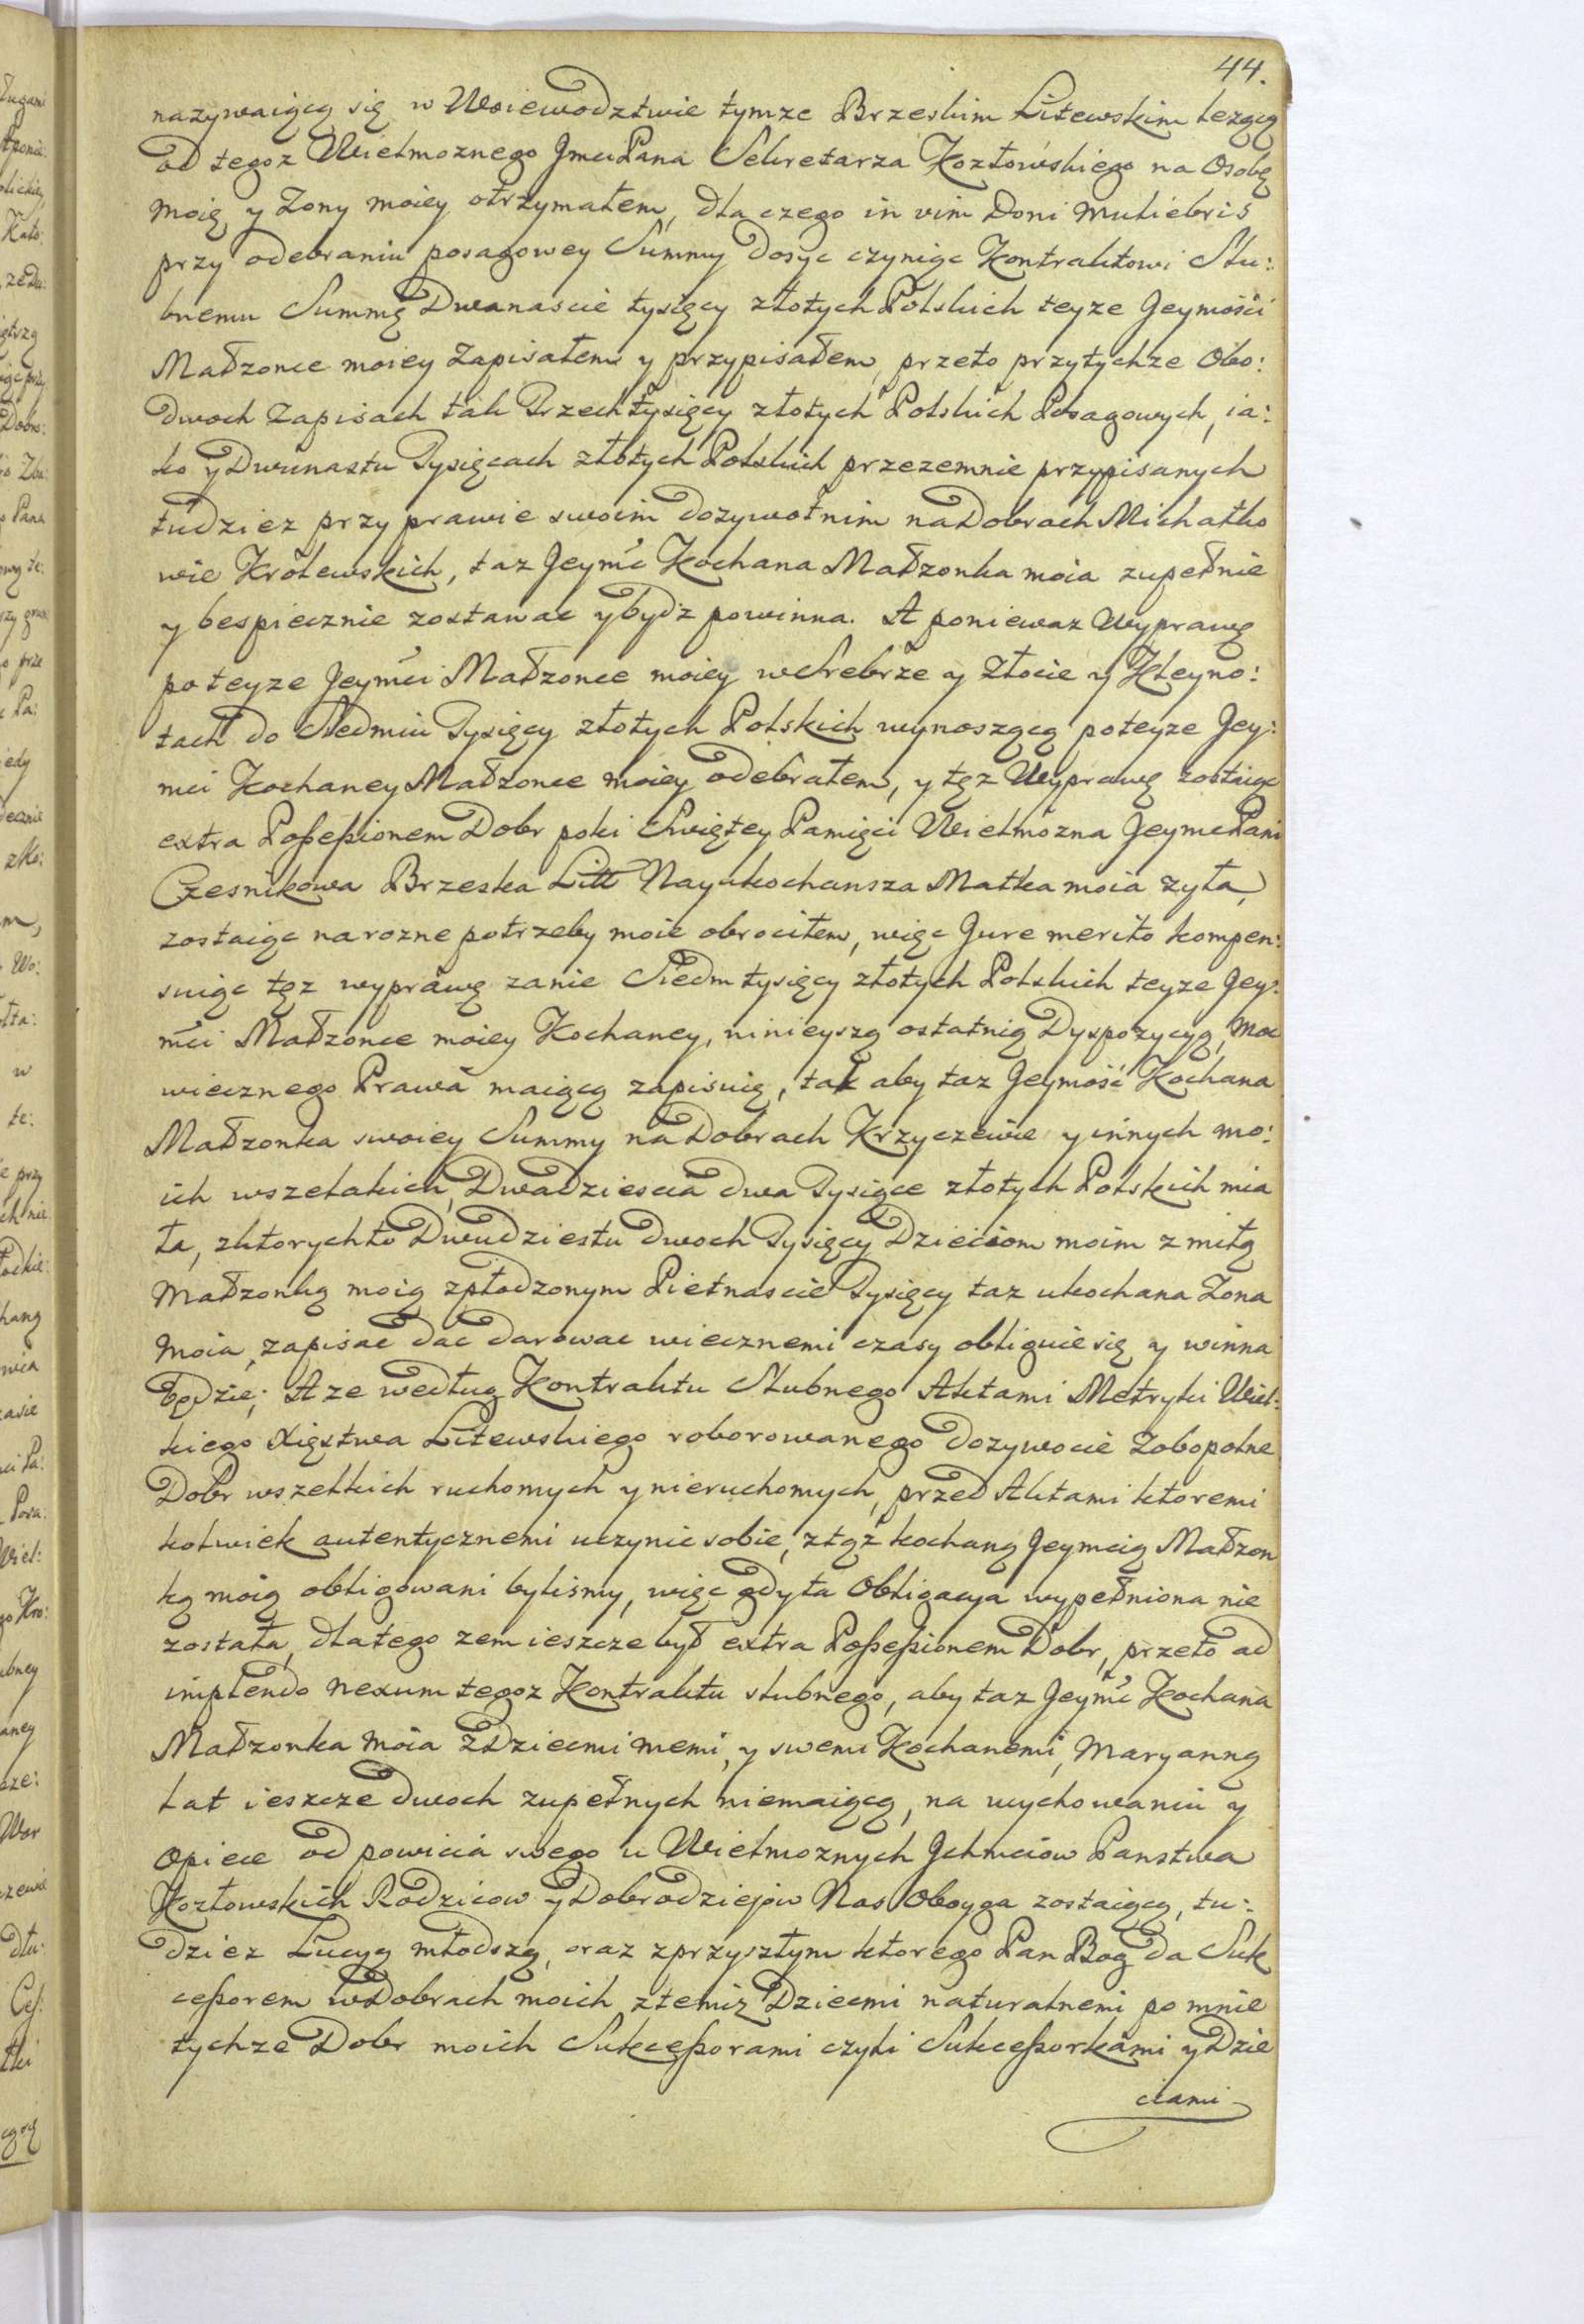 44.
nazywaiącą się w Woiewodztwie tymze Brzeskim Litewskim lezącą
od tegoz Wielmoznego JmciPana Sekretarza Kozłowskiego na Osobę
moię y Zony moiey otrzymałem, dla czego in vim Doni muliebris
przy odebraniu posagowey Summy dosyc czyniąc Kontraktowi Slu:
bnemu Summę Dwanascie tysięcy złotych Polskich teyze Jeymości
Małzonce moiey Zapisałem y przypisałem, przeto przytychze Obo:
dwoch Zapisach tak Trzech tysięcy złotych Polskich Posagowych, ia:
ko y Dwunastu Tysiącach złotych Polskich przezemnie przypisanych
tudziez przy prawie swoim dozywotnim na Dobrach Michałko
wie Królewskich, taz Jeymć Kochana Małzonka moia zupełnie
y bespiecznie zostawac y bydz powinna. A poniewaz Wyprawę
po teyze Jeymci Małzonce moiey w Srebrze y Złocie y Kleyno:
tach do Siedmiu Tysięcy złotych Polskich wynoszącą poteyze Jey:
mci Kochaney Małzonce moiey odebrałem, y tęz Wyprawę zostaiąc
extra Poßeßionem Dobr poki Swiętey Pamięci Wielmozna JeymcPani
Czesnikowa Brzeska Litt Nayukochansza Matka moia zyła,
zostaiąc na rozne potrzeby moie obrociłem, więc Jure merito kompen:
suiąc tęz wyprawę zanie Siedm tysięcy złotych Polskich teyze Jey:
mci Małzonce moiey Kochaney, ninieyszą ostatnią Dyspozycyą, moc
wiecznego Prawa maiącą zapisuię, tak aby taz Jeymość Kochana
Małzonka swoiey Summy na Dobrach Krzyczewie y innych mo:
ich wszelakich, Dwadziescia dwa Tysiące złotych Polskich mia
ła, zktorych to Dwudziestu dwoch Tysięcy Dzieciom moim z miłą
Małzonką moią zpłodzonym Pietnascie Tysięcy taz ukochana Zona
moia, zapisac dac darowac wiecznemi czasy obliguie się y winna
będzie; A ze według Kontraktu Slubnego Aktami Metryki Wiel:
kiego Xięstwa Litewskiego roborowanego dozywocie Zobopolne
Dobr wszelkich ruchomych y nieruchomych, przed Aktami ktoremi
kolwiek autentycznemi uczynic sobie, ztąz kochaną Jeymcią Małzon
ką moią obligowani bylismy, więc gdy ta Obligacya wypełniona nie
została, dlatego zem ieszcze był extra Poßeßionem Dobr, przeto ad
implendo nexum tegoz Kontraktu slubnego, aby taz Jeymć Kochana
Małzonka moia z Dziecmi memi, y swemi Kochanemi, Maryanną
lat ieszcze dwoch zupełnych niemaiącą, na wychowaniu y
opiece od powicia swego u Wielmoznych Jchmciow Panstwa
Kozłowskich Rodzicow y Dobrodziejow Nas Oboyga zostaiącą, tu:
dziez Lucyą młodszą, oraz zprzyszłym ktorego Pan Bog da Suk
ceßorem w Dobrach moich ztemiz Dziecmi naturalnemi po mnie
tychze Dobr moich Sukceßorami czyli Sukceßorkami y Dzie
ciami